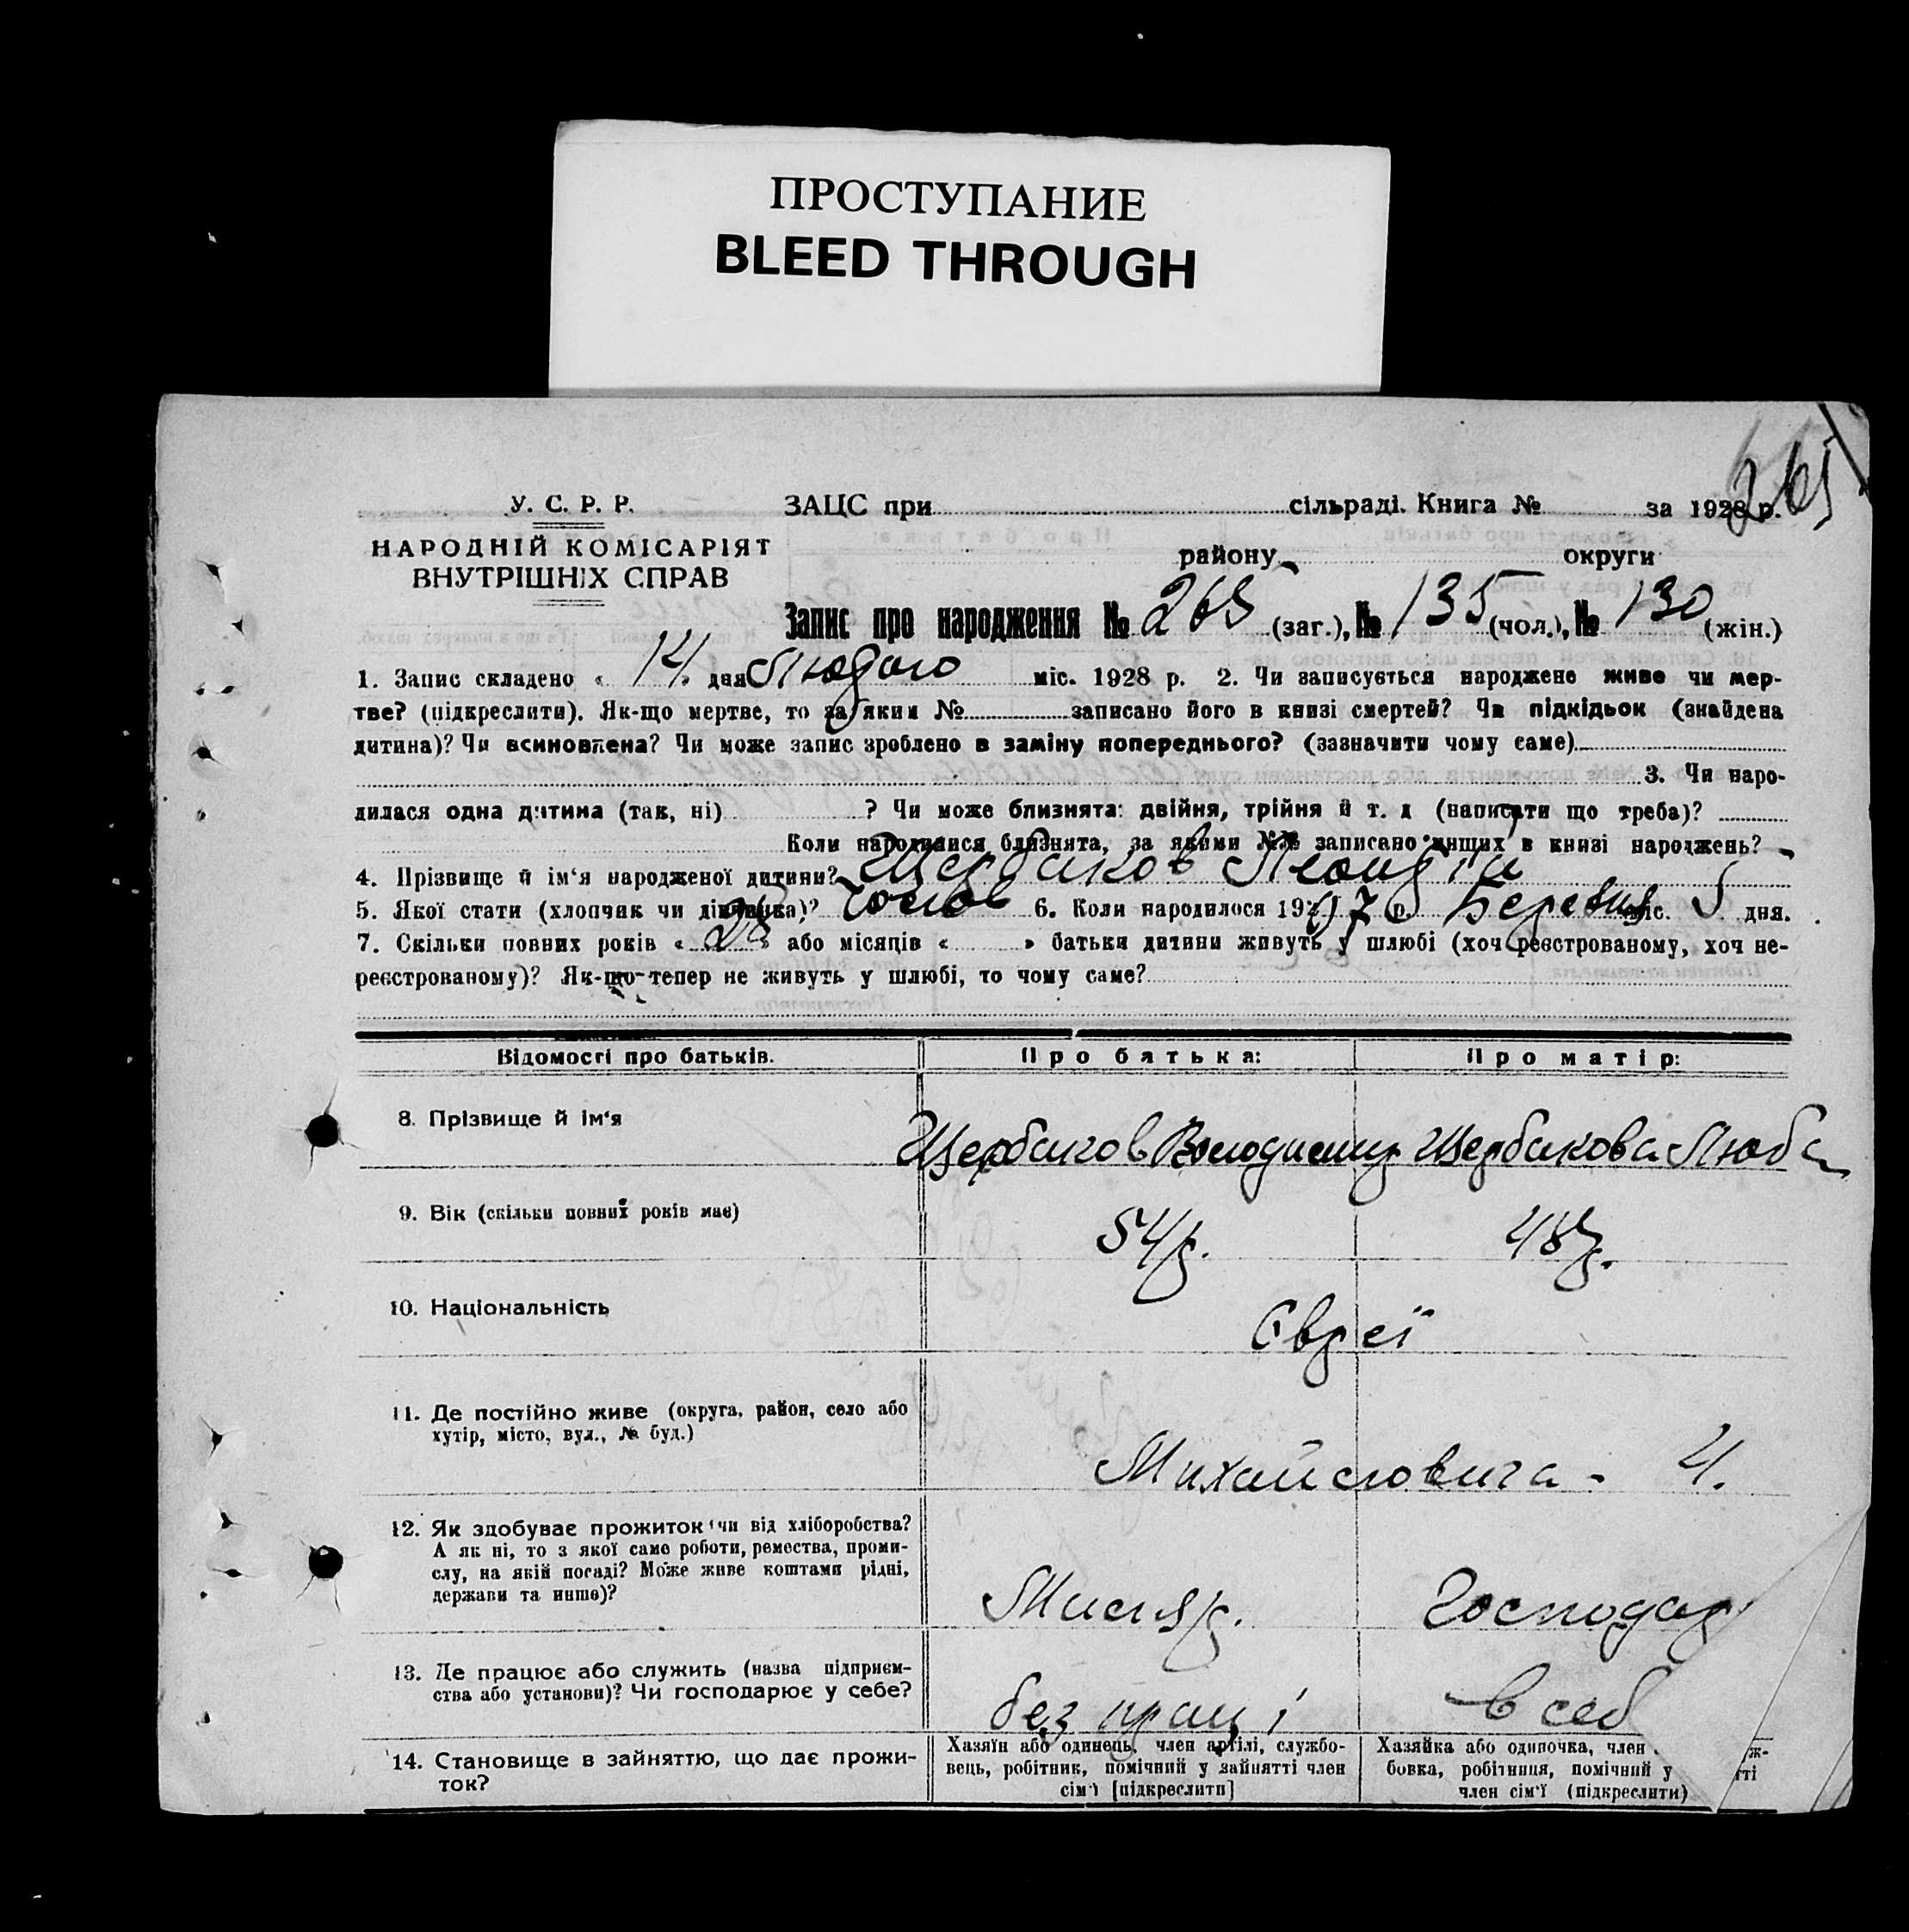 ПРОСТУПАНИЕ
BLEED THROUGH
265
У. С. Р. Р.
ЗАЦС при сільраді. Книга № за 1928 р.
НАРОДНІЙ КОМІСАРІЯТ
ВНУТРІШНІХ СПРАВ
району округи
Запис про народження № 265 (заг.), № 135 (чол.), № 130 (жін.)
1. Запис складено « 14 » дня Лютого міс. 1928 р. 2. Чи записується народжене живе чи мер-
тве? (підкреслити). Як-що мертве, то за яким № записано його в книзі смертей? Чи підкідьок (знайдена
дитина)? Чи всиновлена? Чи може запис зроблено в заміну попереднього? (зазначити чому саме)
3. Чи наро-
дилася одна дитина (так, ні) ? Чи може близнята: двійня, трійня й т. д (написати що треба)?
Коли народилися близнята, за якими №№ записано инших в книзі народжень?
4. Прізвище й ім'я народженої дитини? Щербаков Леонід
5. Якої стати (хлопчик чи дівчинка)? Чолов 6. Коли народилося 19 р. Березня міс. 5 дня.
7. Скільки повних років « 28 » або місяців « » батьки дитини живуть у шлюбі (хоч реєстрованому, хоч не-
реєстрованому)? Як-що тепер не живуть у шлюбі, то чому саме?
Відомості про батьків. Про батька: Про матір:
8. Прізвище й ім'я Щербаков Володимир Щербакова Люба
9. Вік (скільки повних років має) 54 р. 48 р.
10. Національність Євреї
11. Де постійно живе (округа, район, село або
хутір, місто, вул., № буд.)
Михайловича - 4.
12. Як здобуває прожиток чи від хліборобства?
А як ні, то з якої саме роботи, ремества, проми-
слу, на якій посаді? Може живе коштами рідні,
держави та инше)?
Мисляр. Господар
13. Де працює або служить (назва підприєм-
ства або установи)? Чи господарює у себе?
без праці в себ
14. Становище в зайняттю, що дає прожи-
ток?
Хазяїн або одинець, член артілі, службо-
вець, робітник, помічний у зайнятті член
сім'ї [підкреслити]
Хазяйка або одиночка, член ж-
бовка, робітниця, помічний у тті
член сім'ї (підкреслити)